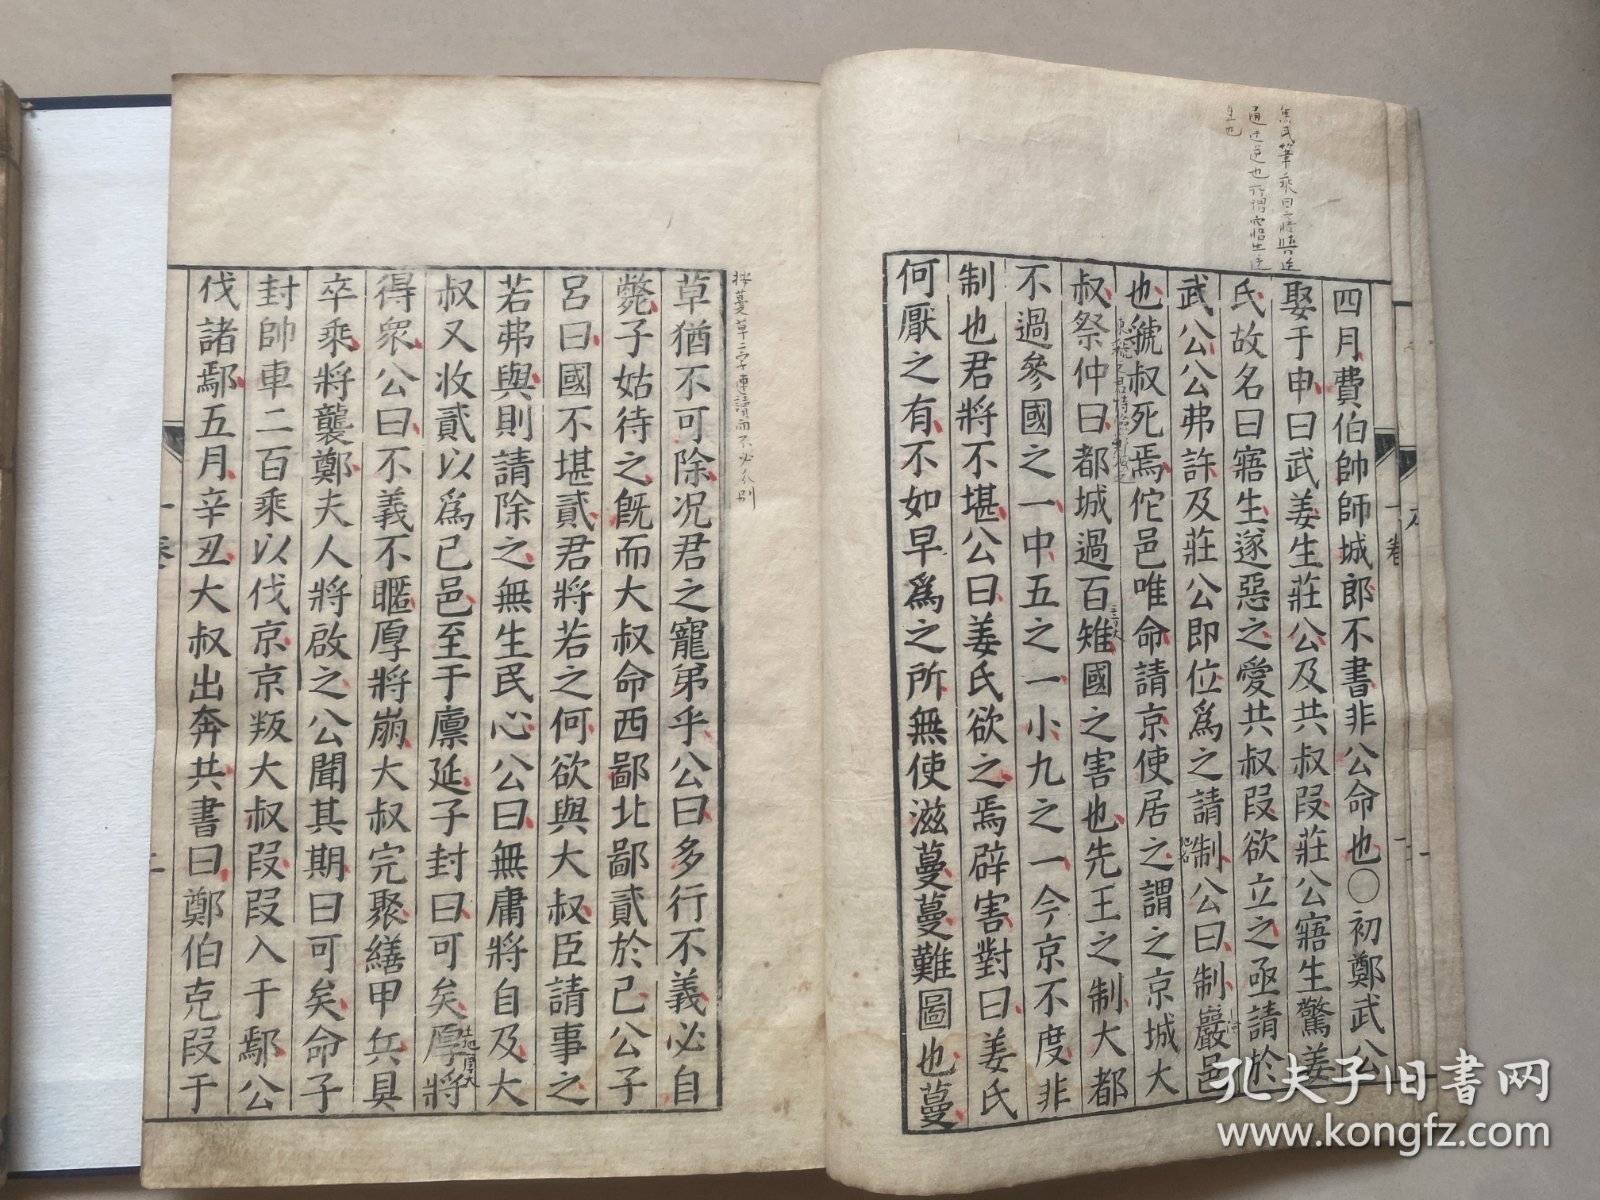 四月費伯帥師城郎不書非公命也○初鄭武公
娶于申曰武姜生莊公及共叔段莊公寤生驚姜
氏故名曰寤生遂惡之愛共叔段欲立之亟請於
武公公弗許及莊公即位爲之請制公曰制巖邑
也虢叔死焉佗邑唯命請京使居之謂之京城大
叔祭仲曰都城過百雉國之害也先王之制大都
不過參國之一中五之一小九之一今京不度非
制也君將不堪公曰姜氏欲之焉辟害對曰姜氏
何厭之有不如早爲之所無使滋蔓蔓難圖也蔓
按蔓草二字連讀而不必分別
草猶不可除况君之寵弟乎公曰多行不義必自
斃子姑待之旣而大叔命西鄙北鄙貳於己公子
呂曰國不堪貳君將若之何欲與大叔臣請事之
若弗與則請除之無生民心公曰無庸將自及大
叔又收貳以爲己邑至于廪延子封曰可矣厚將
得衆公曰不義不暱厚將崩大叔完聚繕甲兵具
卒乘將襲鄭夫人將啟之公聞其期曰可矣命子
封帥車二百乘以伐京京叛大叔段段入于鄢公
伐諸鄢五月辛丑大叔出奔共書曰鄭伯克段于
孔夫子旧书网
www.kongfz.com